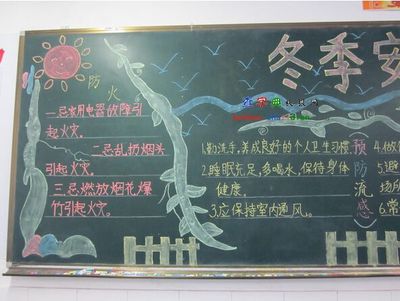 冬季安
防火
一忌家用电器故障引
起火灾。
二忌乱扔烟头
引起火灾。
三忌燃放烟花爆
竹引起火灾。
预防流感
1.勤洗手,养成良好的个人卫生习惯
2.睡眠充足,多喝水,保持身体
健康。
3.应保持室内通风。
4.做
5.避
场所
6.常